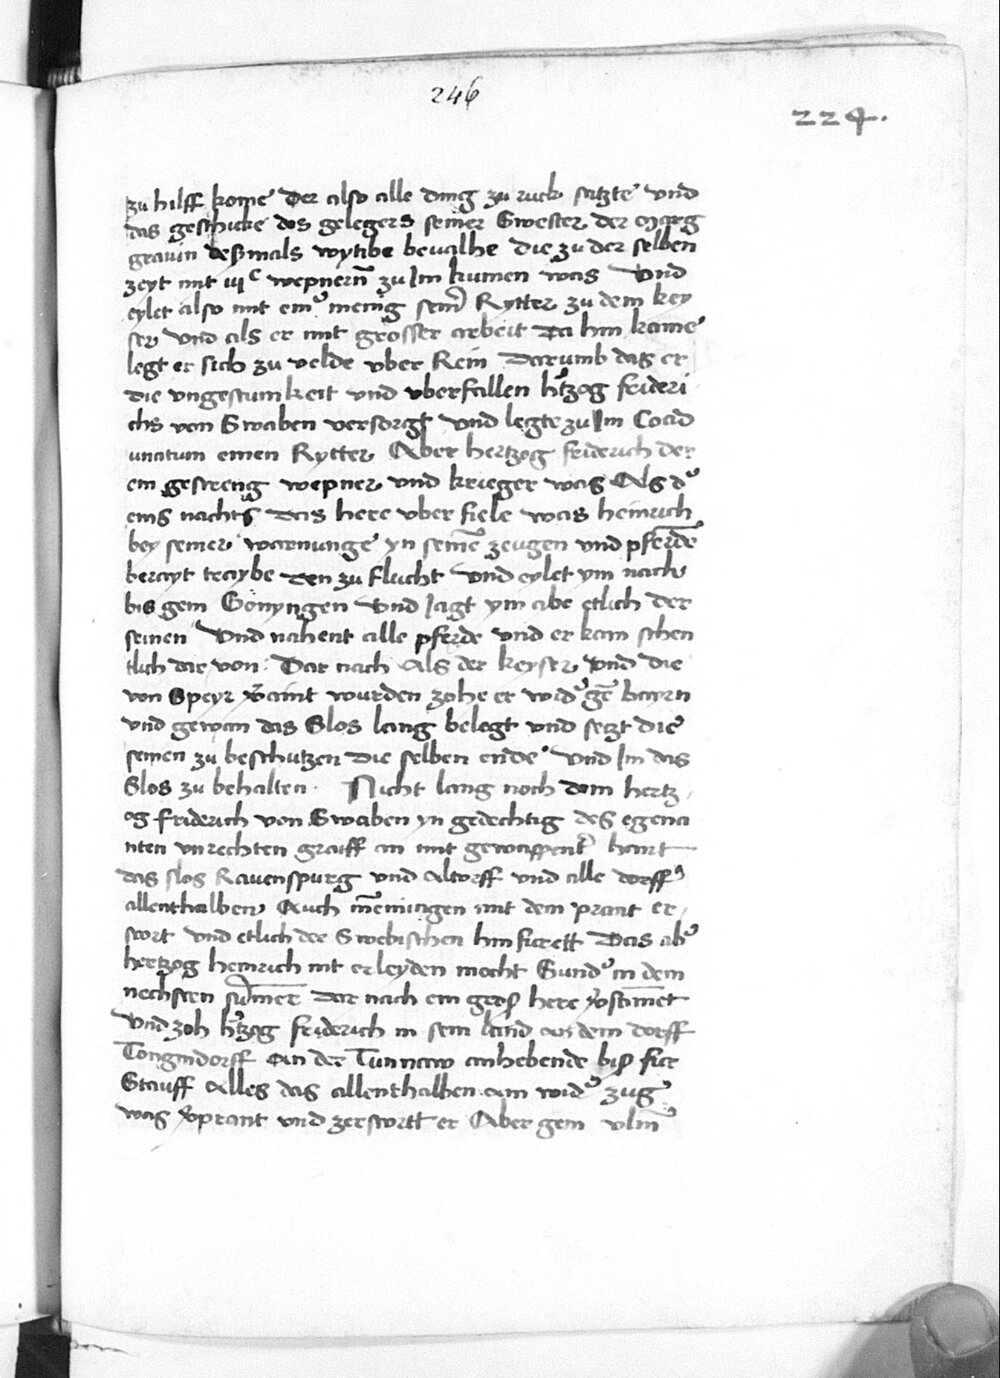 246
224.
zu hilff kome der also alle ding zu ruck satzte vnd
das geschicke des gelegers seiner Swester der marg
grauin deßmals wytibe bevalhe die zu der selben
zeyt mit iijc wepnern zu Im kumen was Vnd
eylet also mit eim menig seiner Rytter zu dem key
ser vnd als er mit grosser arbeit da hin kame
legt er sich zu velde vber Rein Darumb das er
die vngestumkeit vnd vberfallen hertzog frideri
chs von Swaben versorgt vnd legte zu Im Coad
unatum einen Rytter Aber hertzog friderich der
ein gestreng wepner vnd krieger was Als der
eins nachts das here vber fiele was heinrich
bey seiner warnunge yn seine zeugen vnd pferde
berayt traybe den zu flucht vnd eylet ym nach
bis gem Gonyngen vnd Jagt ym abe etlich der
seinen Vnd nahent alle pferde vnd er kam schen
tlich dar von: Dar nach Als der keyser vnd die
von Speyr veraint wurden zohe er wider gen bayrn
vnd gewan das Slos lang belegt vnd setzt die
seinen zu beschutzen die selben ende Vnd Im das
Slos zu behalten. Nicht lang noch dem hertz
og friderich von Swaben yn gedechtig des egena
nten vnrechten graiff an mit gewappenter hant
das slos Rauenspurg vnd Altorff vnd alle dorffer
allenthalben Auch memingen mit dem prant er
stort vnd etlich der Swebischen hin furett Das aber
hertzog heinrich nit erleyden mocht Sunder in dem
nechsten summer dar nach ein groß here versammet
Vnd zoh hertzog friderich in sein land an dem dorff
Tongindorff an der Tunnaw anhebende biß fur
Stauff Alles das allenthalben am wider zug
was verprant vnd zerstortt er Aber gem vlm